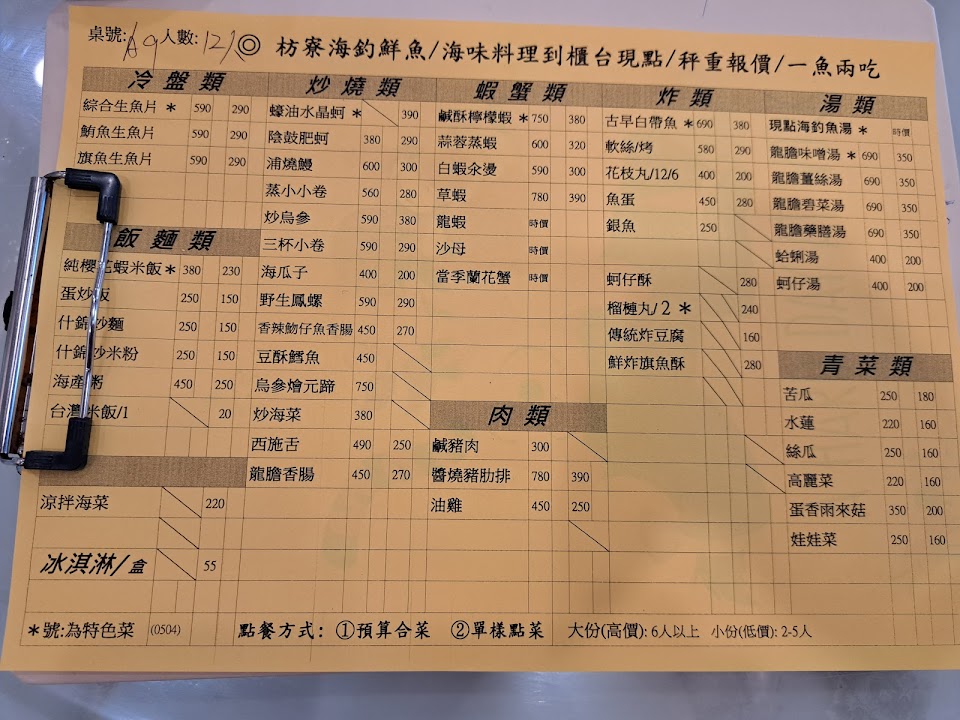 桌號: A9 人數: 12大 ◎ 枋寮海釣鮮魚/海味料理到櫃台現點/秤重報價/一魚兩吃
冷盤類
綜合生魚片 * 590 290
鮪魚生魚片 590 290
旗魚生魚片 590 290
飯麵類
純櫻花蝦米飯 * 380 230
蛋炒飯 250 150
什錦炒麵 250 150
什錦炒米粉 250 150
海產粥 450 250
台灣米飯/1 20
涼拌海菜 220
冰淇淋/盒 55
炒燒類
蠔油水晶蚵 * 390
陰鼓肥蚵 380 290
浦燒鰻 600 300
蒸小小卷 560 280
炒烏參 590 380
三杯小卷 590 290
海瓜子 400 200
野生鳳螺 590 290
香辣魩仔魚香腸 450 270
豆酥鱈魚 450
烏參燴元蹄 750
炒海菜 380
西施舌 490 250
龍膽香腸 450 270
蝦蟹類
鹹酥檸檬蝦 * 750 380
蒜蓉蒸蝦 600 320
白蝦汆燙 590 300
草蝦 780 390
龍蝦 時價
沙母 時價
當季蘭花蟹 時價
肉類
鹹豬肉 300
醬燒豬肋排 780 390
油雞 450 250
炸類
古早白帶魚 * 690 380
軟絲/烤 580 290
花枝丸/12/6 400 200
魚蛋 450 280
銀魚 250
蚵仔酥 280
榴槤丸/2 * 240
傳統炸豆腐 160
鮮炸旗魚酥 280
湯類
現點海釣魚湯 * 時價
龍膽味噌湯 * 690 350
龍膽薑絲湯 690 350
龍膽碧菜湯 690 350
龍膽藥膳湯 690 350
蛤蜊湯 400 200
蚵仔湯 400 200
青菜類
苦瓜 250 180
水蓮 220 160
絲瓜 250 160
高麗菜 220 160
蛋香雨來菇 350 200
娃娃菜 250 160
*號:為特色菜 (0504) 點餐方式: ①預算合菜 ②單樣點菜 大份(高價): 6人以上 小份(低價): 2-5人